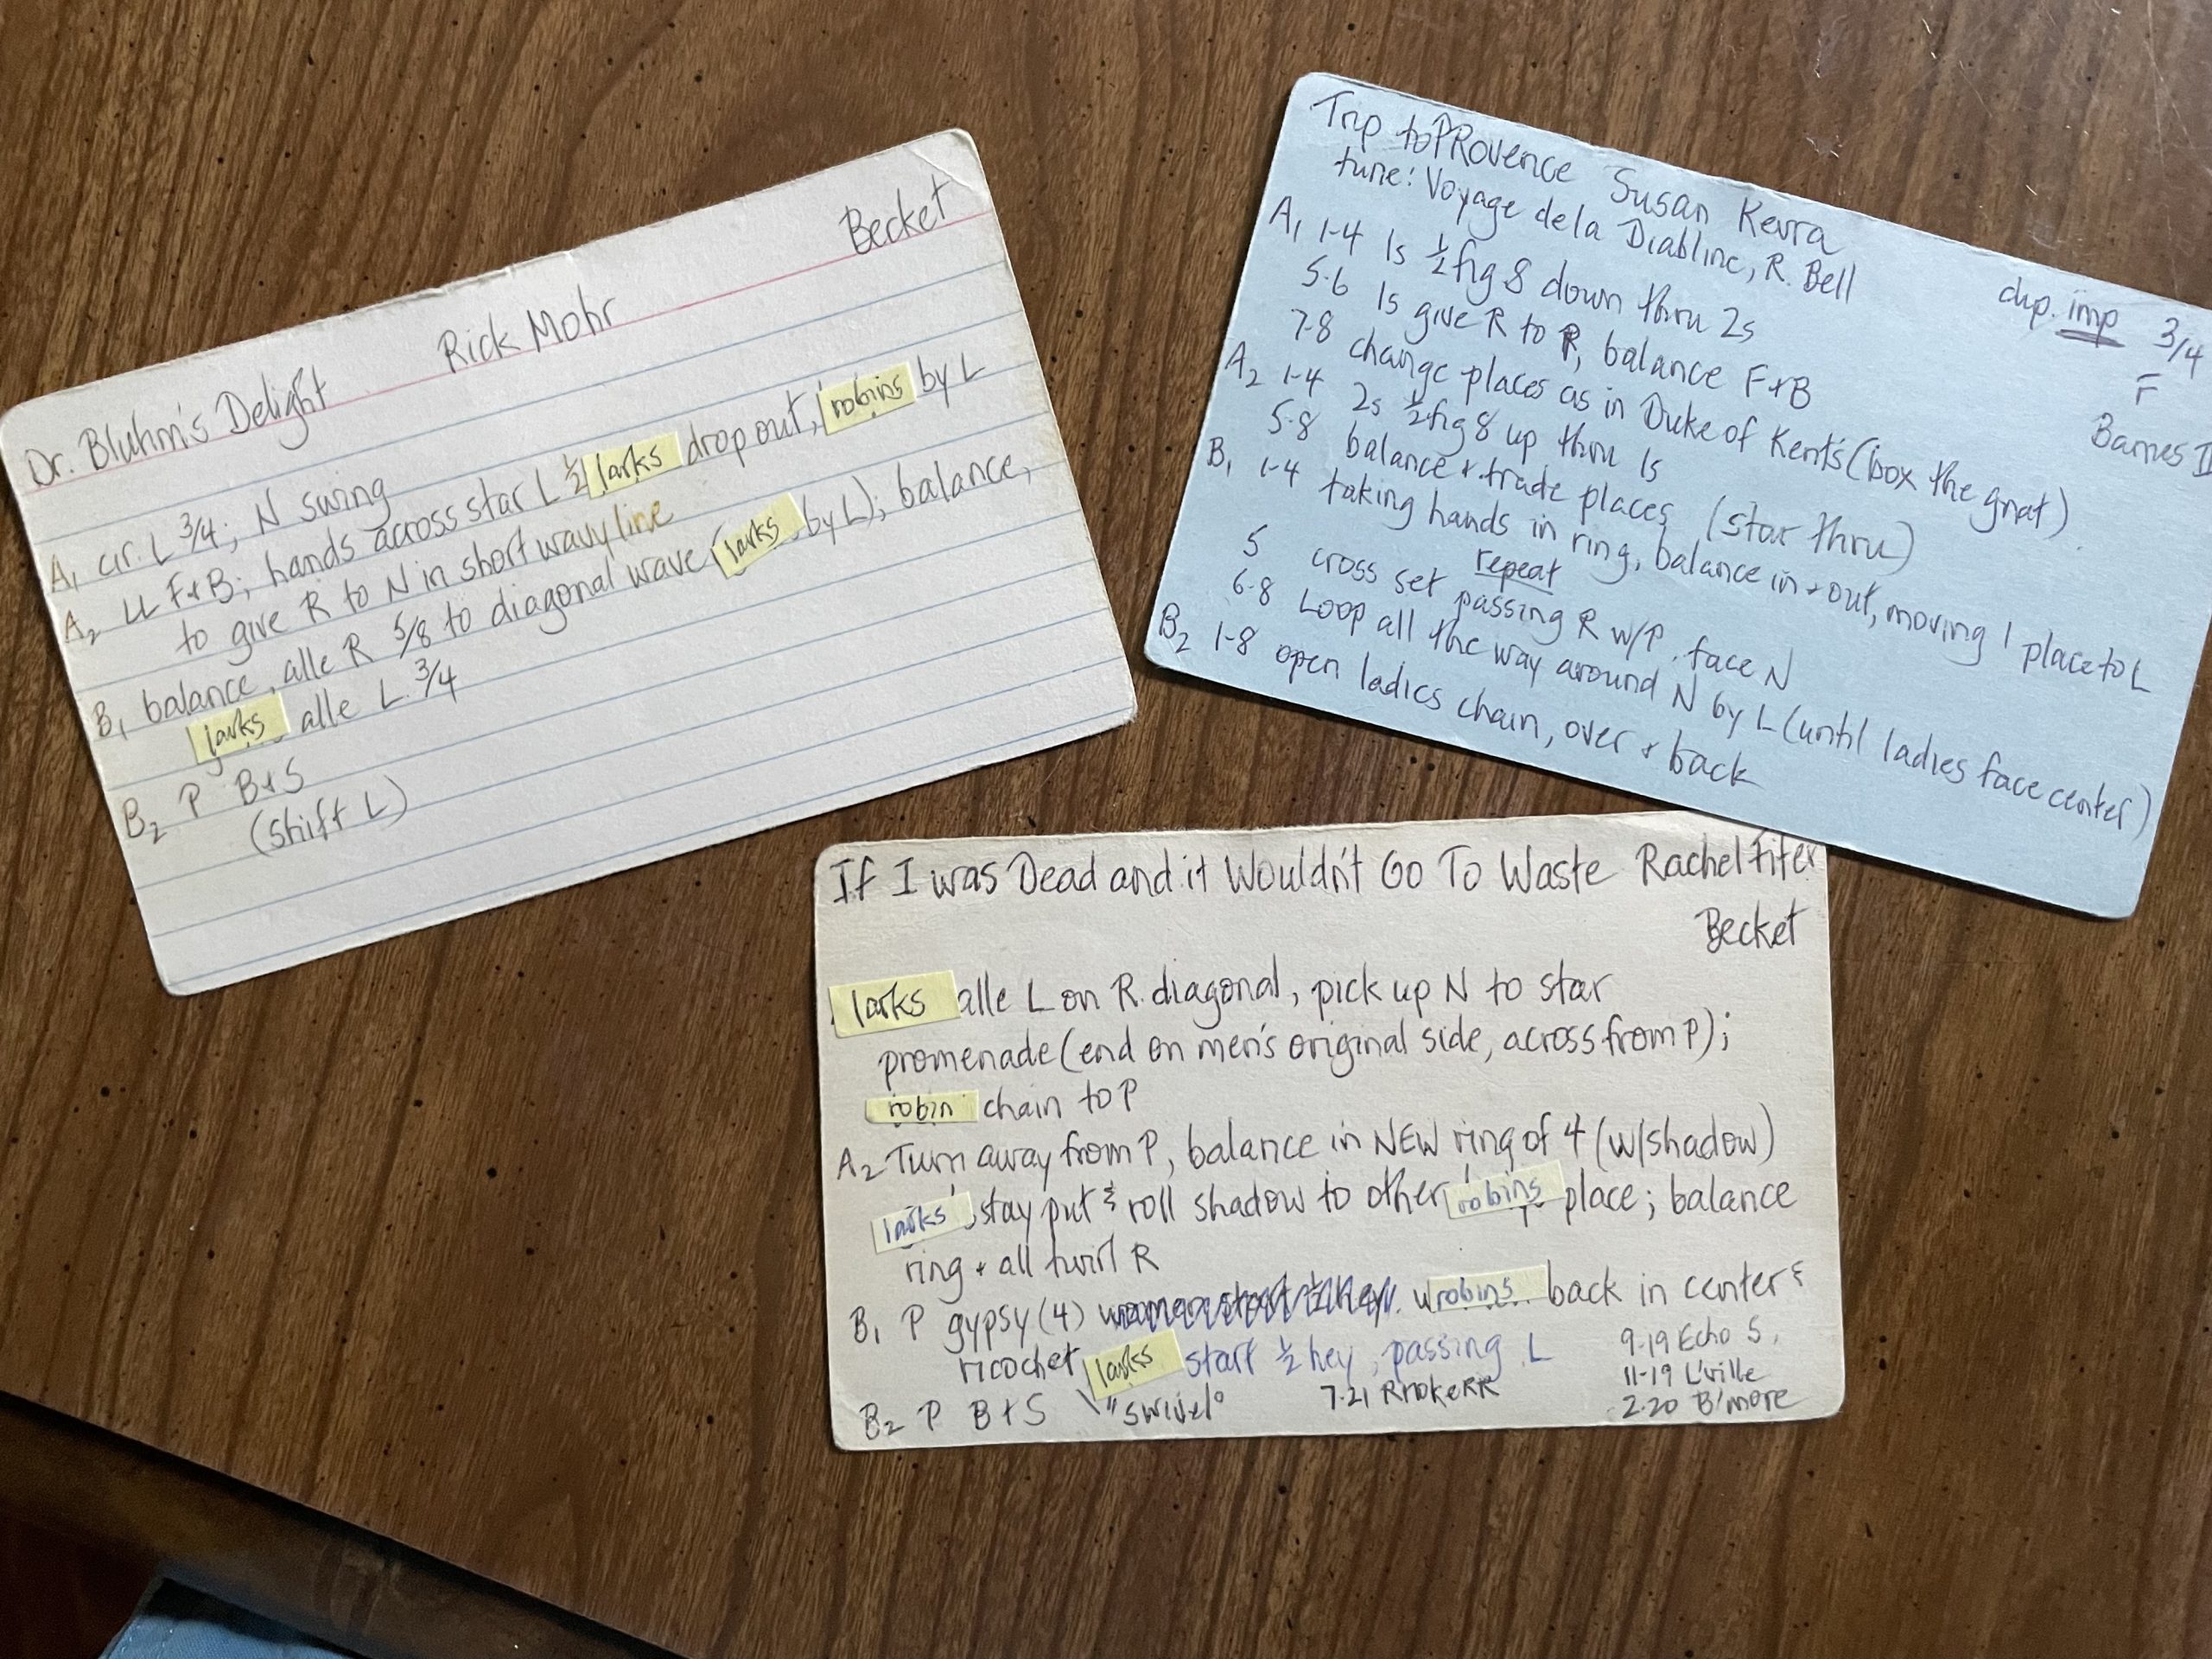 Dr. Bluhm's Delight Rick Mohr Becket
A1 cir. L 3/4; N swing
A2 LL F+B; hands across star L 1/2 larks drop out, robins by L
to give R to N in short wavy line
B1 balance, alle R 5/8 to diagonal wave (larks by L); balance,
larks alle L 3/4
B2 P B+S
(shift L)
Trip to PRovence Susan Kevra
tune: Voyage de la Diabline, R. Bell
dup. imp 3/4
F
Barnes II
A1 1-4 1s 1/2 fig 8 down thru 2s
5-6 1s give R to P, balance F+B
7-8 change places as in Duke of Kent's (box the gnat).
A2 1-4 2s 1/2 fig 8 up thru 1s
5-8 balance + trade places (star thru)
B1 1-4 taking hands in ring, balance in + out, moving 1 place to L
repeat
5 cross set passing R w/P. face N
6-8 Loop all the way around N by L (until ladies face center)
B2 1-8 open ladies chain, over + back
If I was Dead and it Wouldn't Go To Waste Rachel Fifer
Becket
larks alle L on R. diagonal, pick up N to star
promenade (end on men's original side, across from P);
robin chain to P
A2 Turn away from P, balance in NEW ring of 4 (w/shadow)
larks stay put & roll shadow to other robins place; balance
ring + all twirl R
B1 P gypsy (4) women start 1/2 hey. robins back in center &
ricochet larks start 1/2 hey, passing L
B2 P B+S "swivel"
7-21
9-19 Echo S.
11-19 L'ville
2-20 B'more